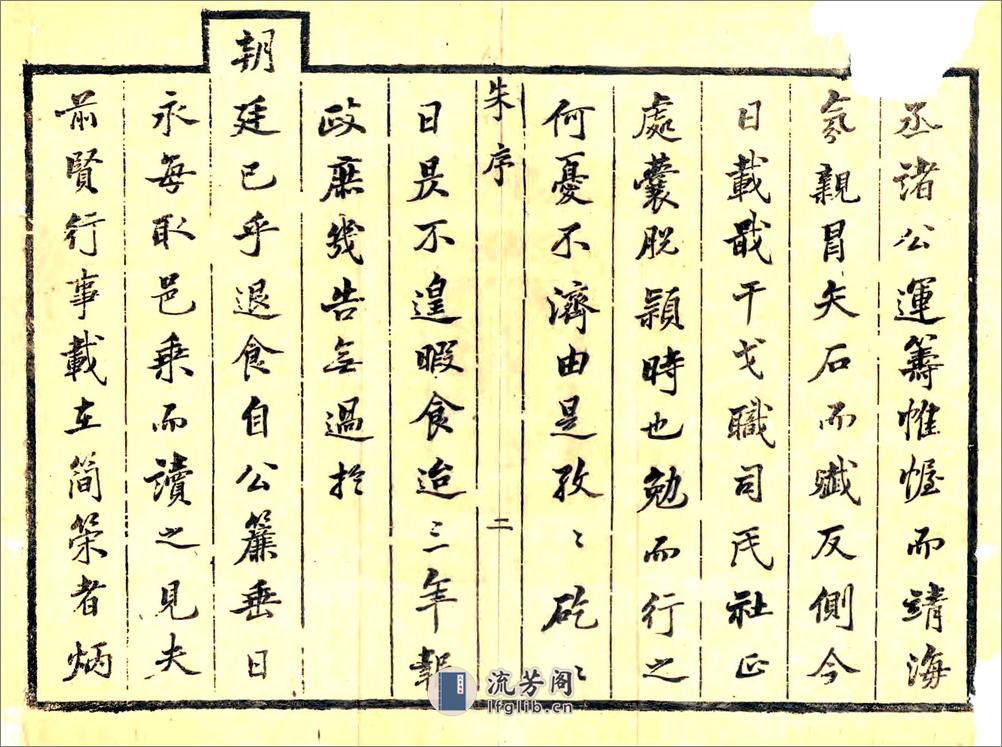 丞諸公運籌惟幄而靖海
氛親冒矢石而殲反側今
日載戢干戈職司民社正
處囊脫穎時也勉而行之
何憂不濟由是孜〻矻〻
朱序
二
日昃不遑暇食迨三年報
政庶幾告無過於
朝
廷已乎退食自公簾垂日
永每取邑乗而讀之見夫
前賢行事載在简策者炳
流芳阁
lfglib.cn